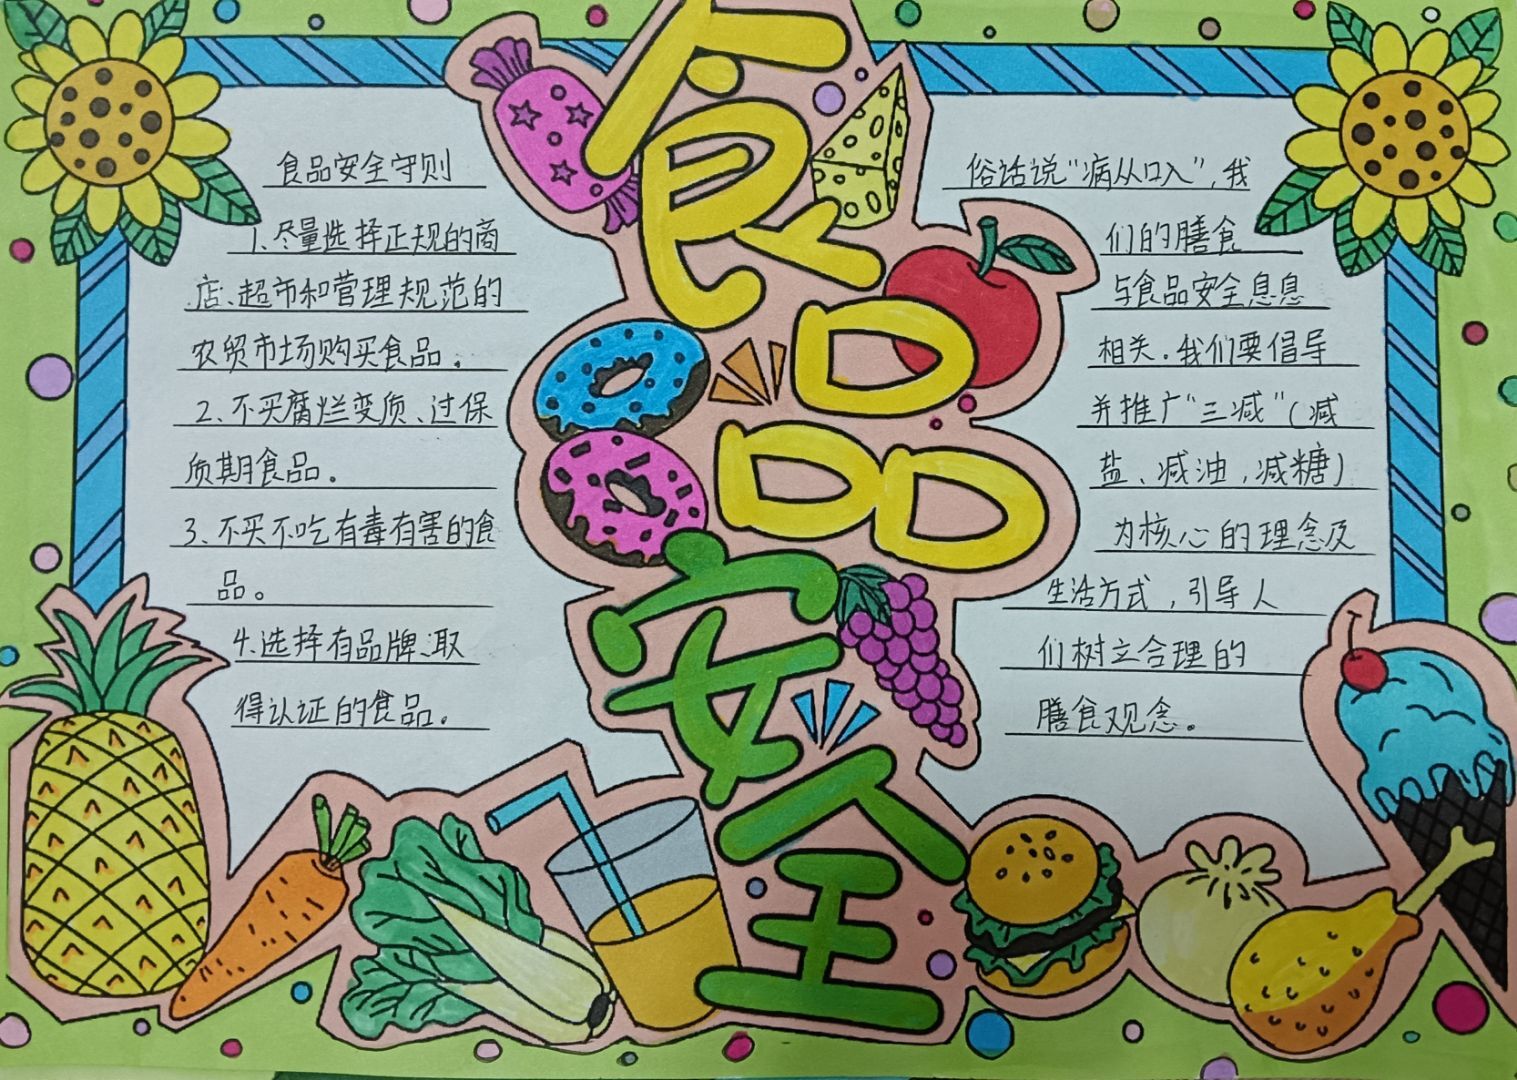 食品安全
食品安全守则
1、尽量选择正规的商
店、超市和管理规范的
农贸市场购买食品。
2、不买腐烂变质、过保
质期食品。
3、不买不吃有毒有害的食
品。
4、选择有品牌、取
得认证的食品。
俗话说“病从口入”,我
们的膳食
与食品安全息息
相关。我们要倡导
并推广“三减”(减
盐、减油,减糖)
为核心的理念及
生活方式,引导人
们树立合理的
膳食观念。